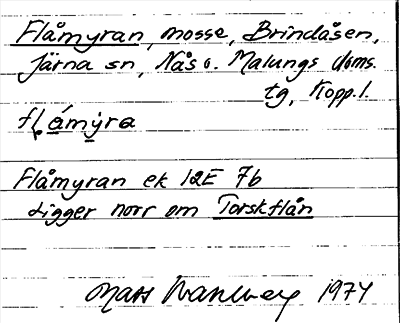 Flåmyran, mosse, Brindåsen,
Järna sn, Nås o. Malungs doms.
tg, Kopp. l.
flǻmy̱ra
Flåmyran ek 12E 7b
Ligger norr om Torskflån
Mats Wahlberg 1974